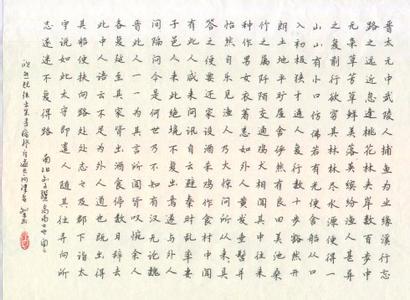 晋太元中武陵人捕鱼为业缘溪行忘
路之远近忽逢桃花林夹岸数百步中
无杂树芳草鲜美落英缤纷渔人甚异
之复前行欲穷其林林尽水源便得一
山山有小口仿佛若有光便舍船从口
入初极狭才通人复行数十步豁然开
朗土地平旷屋舍俨然有良田美池桑
竹之属阡陌交通鸡犬相闻其中往来
种作男女衣着悉如外人黄发垂髫并
怡然自乐见渔人乃大惊问所从来具
答之便要还家设酒杀鸡作食村中闻
有此人咸来问讯自云避秦时乱率妻
子邑人来此绝境不复出焉遂与外人
间隔问今是何世乃不知有汉无论魏
晋此人一一为具言所闻皆叹惋余人
各复延至其家皆出酒食停数日辞去
此中人语云不足为外人道也既出得
其船便扶向路处处志之及郡下诣太
守说如此太守即遣人随其往寻向所
志遂迷不复得路 南阳刘子骥高尚士也闻之